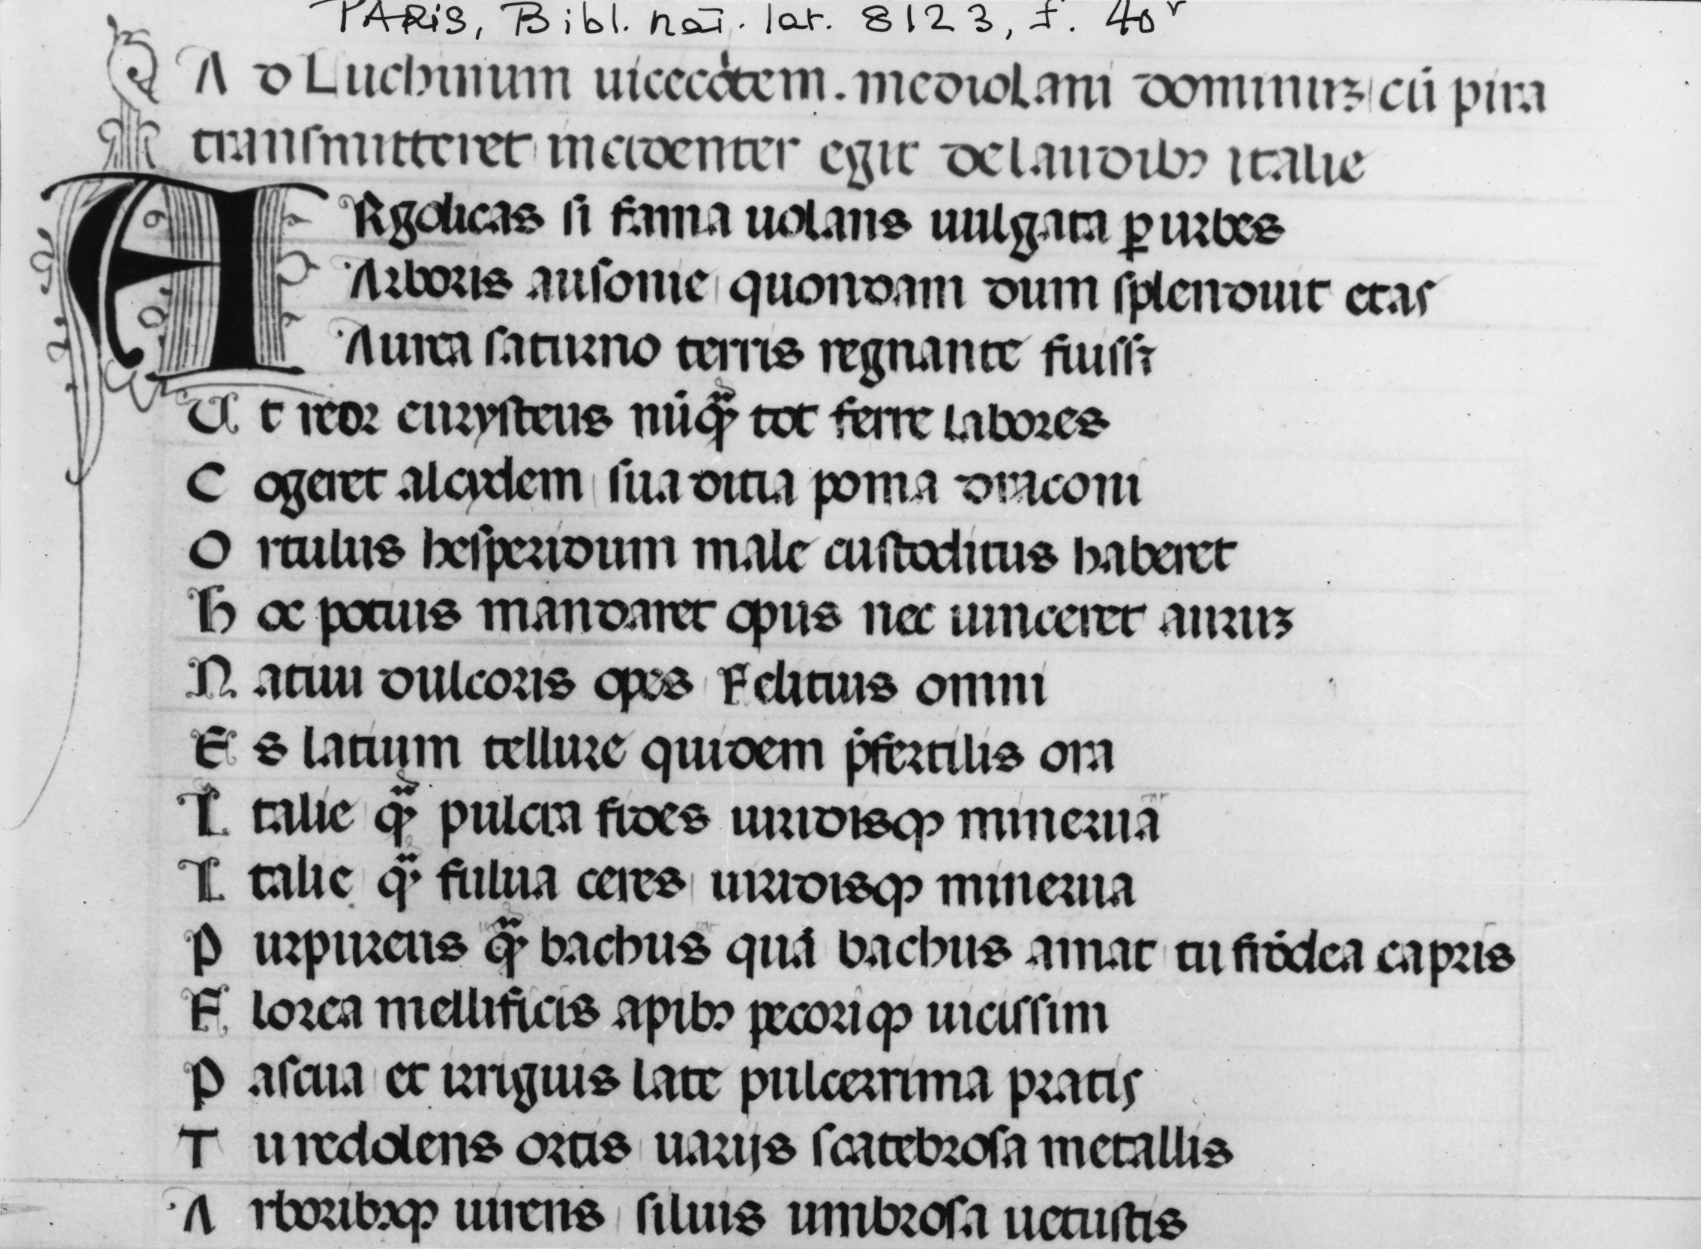 PARIS, Bibl. nat. lat. 8123, f. 40v
Ad Luchinum uicecōtem. mediolani dominuꝫ cū pira
transmitteret incidenter egit de laudibꝫ italie
ARgolicas si fama uolans uulgata ꝑ urbes
Arboris ausonie quondam dum splenduit etas
Aurea saturno terris regnante fuiss;
Ut reor eurysteus nūqᷓ tot ferre labores
Cogeret alcydem sua ditia poma draconi
Ortulus hesperidum male custoditus haberet
Hoc potius mandaret opus nec uinceret auruꝫ
Natiui dulcoris opes Felitius omni
Es latium tellure quidem p̄fertilis ora
Italie qᷓ pulcra fides uiridisqꝫ minerua
Italie qᷓ fulua ceres uiridisqꝫ minerua
Purpureus qᷓ bachus quā bachus amat tu frōdea capris
Florea mellificis apibꝫ pecoriqꝫ uicissim
Pascua et irriguis late pulcerrima pratis
Tu redolens ortis uarijs scatebrosa metallis
Arboribꝫqꝫ uirens siluis umbrosa uetustis